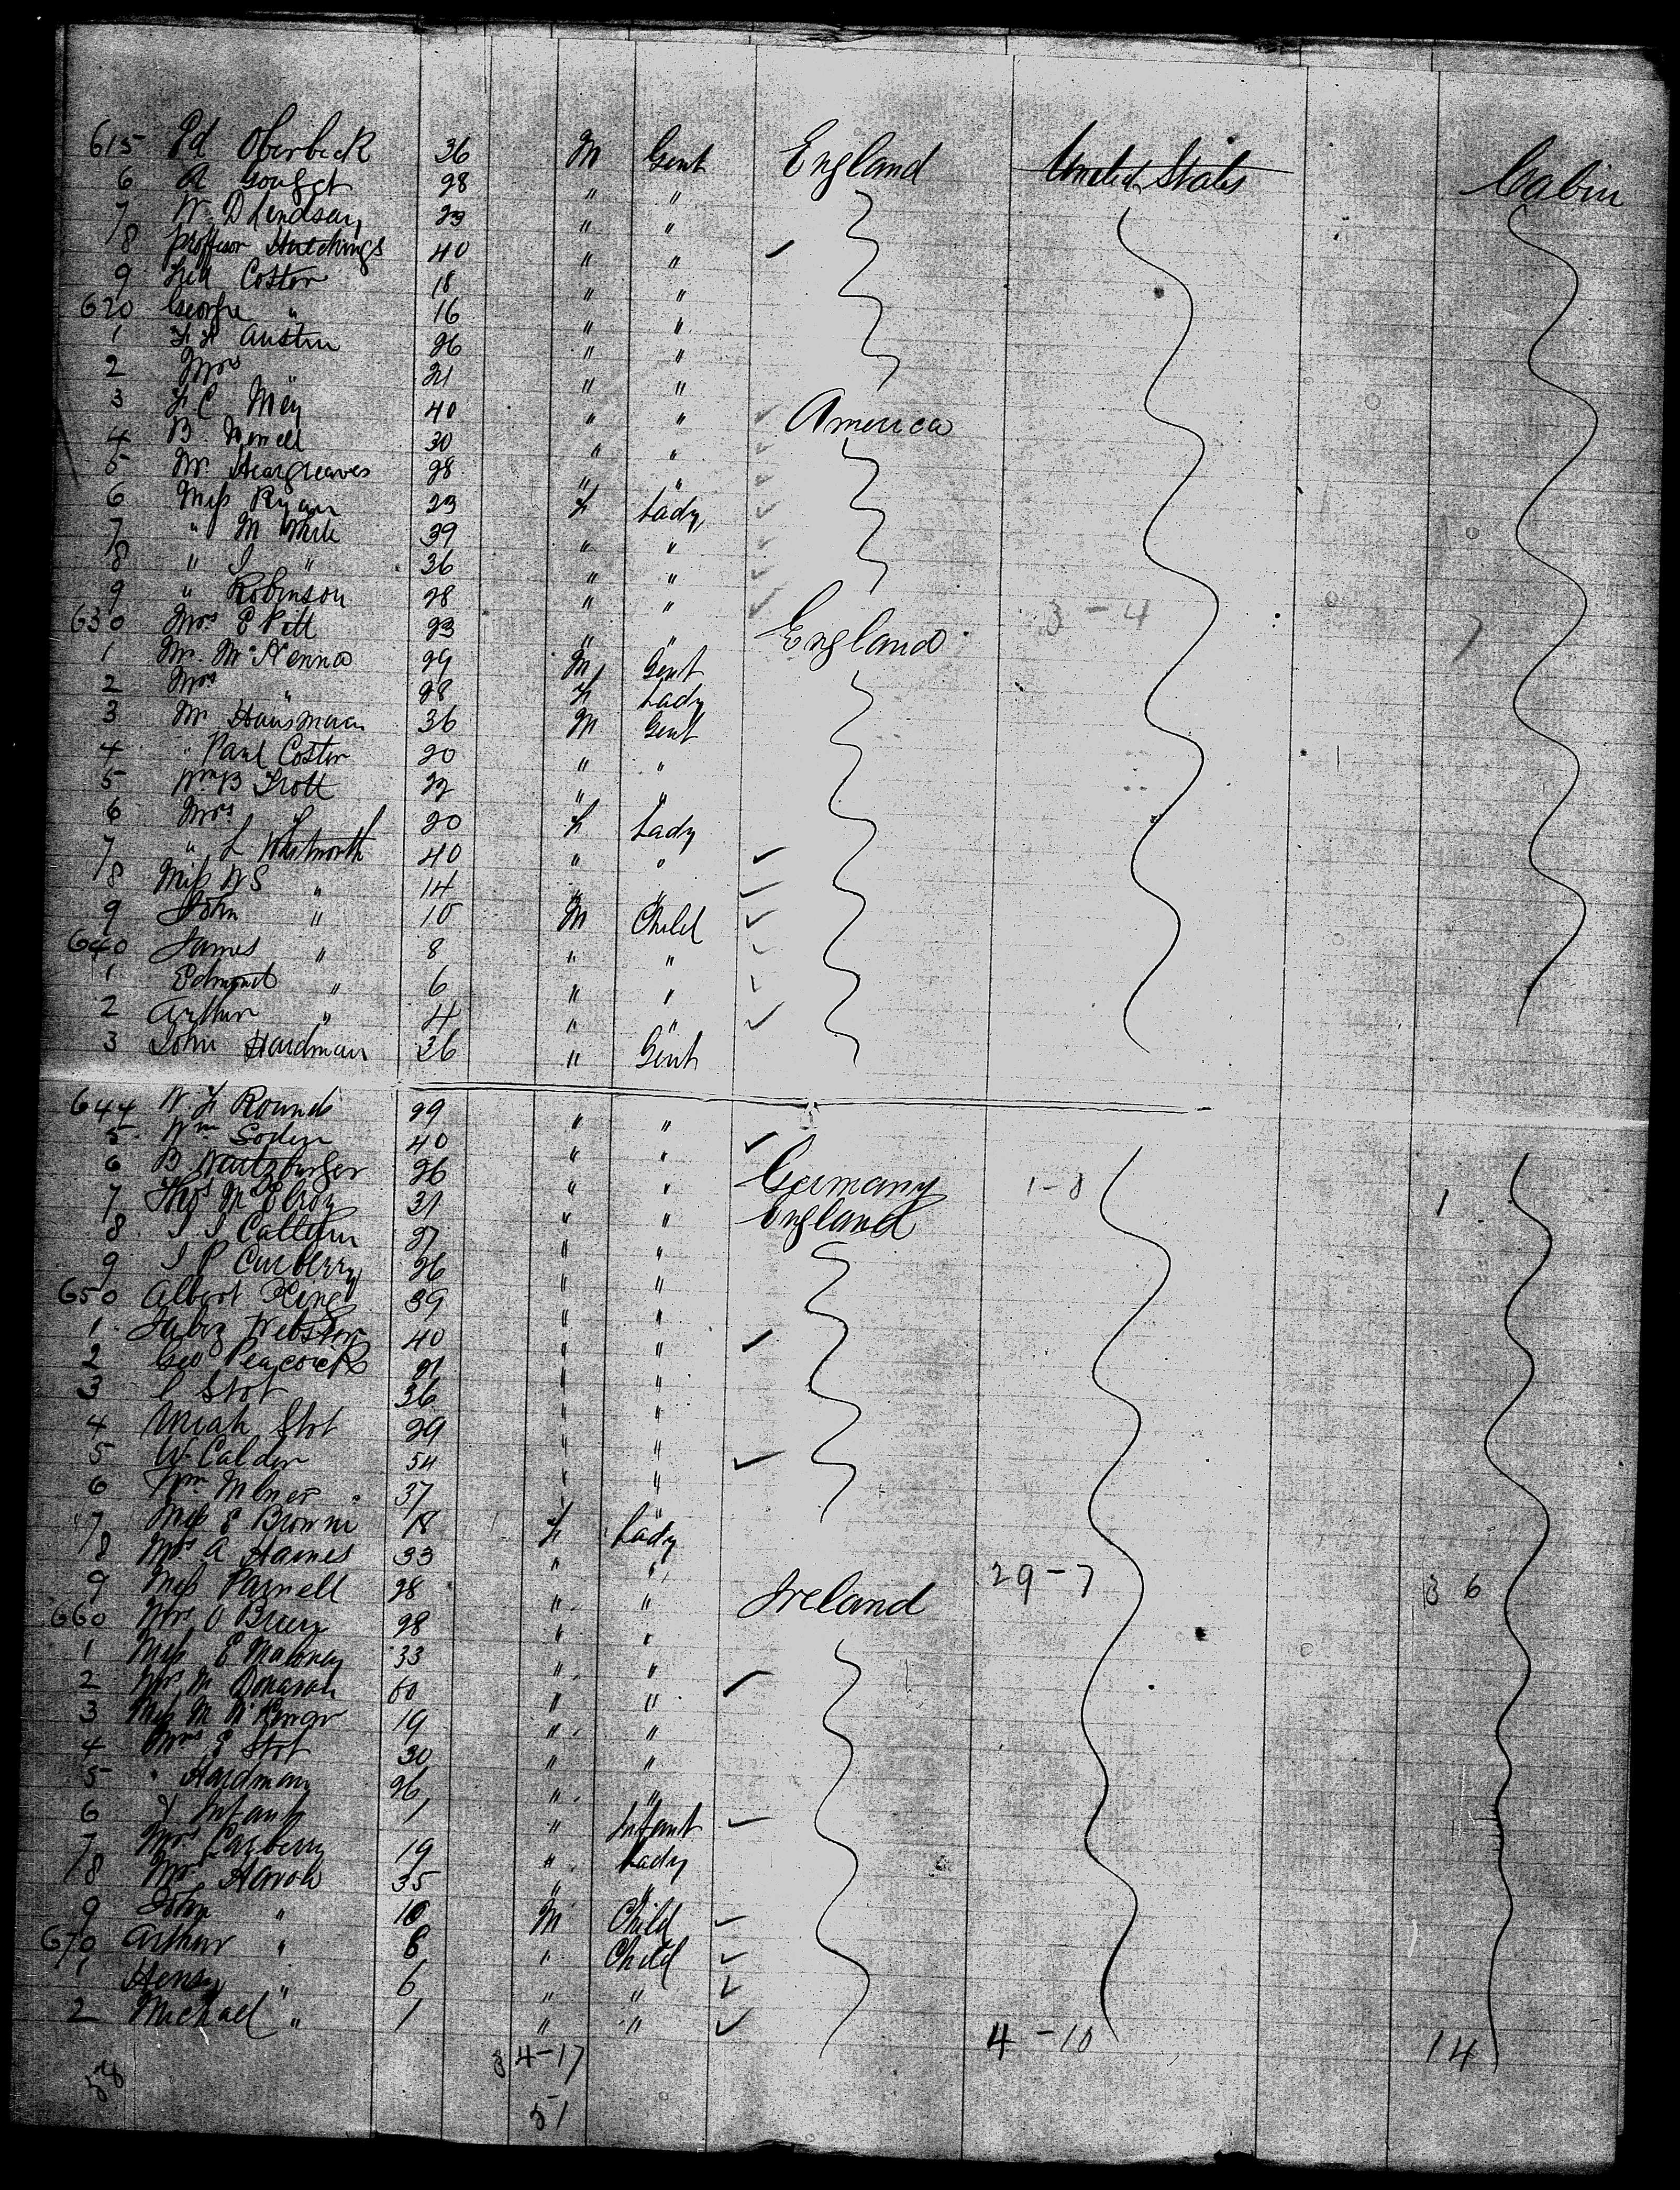 615 Ed Oberbeck 36 M Gent England United States Cabin
6 A Gouget 28 " "
7 W. D Lindsay 23 " "
8 Proffesor Hutchings 40 " "
9 Fred Costor 18 " "
620 George " 16 " "
1 F. F. Austin 26 " "
2 Mrs " 21 " "
3 F. C May 40 " " America
4 B. 30 " "
5 Mr. Heargreaves 28 " "
6 Miss Ryan 23 F Lady
7 " M White 39 " "
8 " J " 36 " "
9 " Robinson 28 " "
630 Mrs E Pitt 23 " " England 3-4 7
1 Mr. McKenna 29 M Gent
2 Mrs " 28 F Lady
3 Mr Hausman 36 M Gent
4 " Paul Costor 20 " "
5 Wm B Trott 22 " "
6 Mrs 20 F Lady
7 " L Whitworth 40 " "
8 Miss W S " 14 " "
9 John " 10 M Child
640 James " 8 " "
1 Edmond " 6 " "
2 Arthur " 4 " "
3 John Hardman 36 " Gent
644 W F Rounds 29 " "
5 Wm Soden 40 " "
6 B Wartzburger 26 " " Germany 1-8 1
7 Thos McElroy 31 " " England
8 J J 27 " "
9 J P Curberry 26 " "
650 Albert King 39 " "
1 Jabez Webster 40 " "
2 Geo Peacock 21 " "
3 C Stot 36 " "
4 Uriah Stot 29 " "
5 W. Calder 54 " "
6 Wm Milner 37 " "
7 Miss E Browne 18 F Lady
8 Mrs A Haines 33 " "
9 Miss Parnell 28 " " Ireland 29-7 36
660 Mrs O Brien 28 " "
1 Miss E Maloney 33 " "
2 Mrs M Donavan 60 " "
3 Miss M 19 " "
4 Mrs E Stot 30 " "
5 " Hardman 26 " "
6 & Infant 1 " Infant
7 Mrs Carberry 19 " Lady
8 Mrs 35 " "
9 John " 10 M Child
670 Arthur " 8 " Child
1 Henry " 6 " "
2 Michael " 1 " "
4-10 14
58 34-17
51